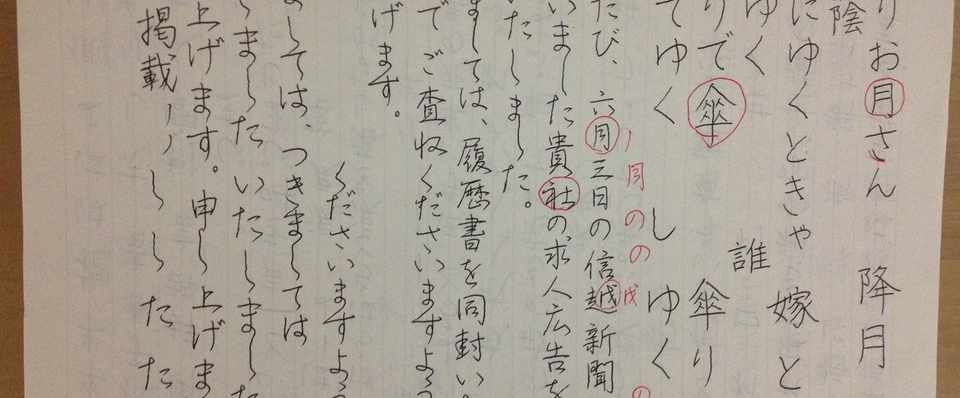 りお月さん　降月
陰
にゆくときゃ　嫁と
ゆく　誰
りで傘　傘り
てゆく　しゆく
月のの戌
の
たび、六月三日の信越新聞
いました貴社の求人広告を
いたしました。
ましては、履歴書を同封い
でご査収くださいますよう
げます。
くださいますよう
ましては、つきましては
しましたいたしました
上げます。申し上げま
掲載ノノししたた